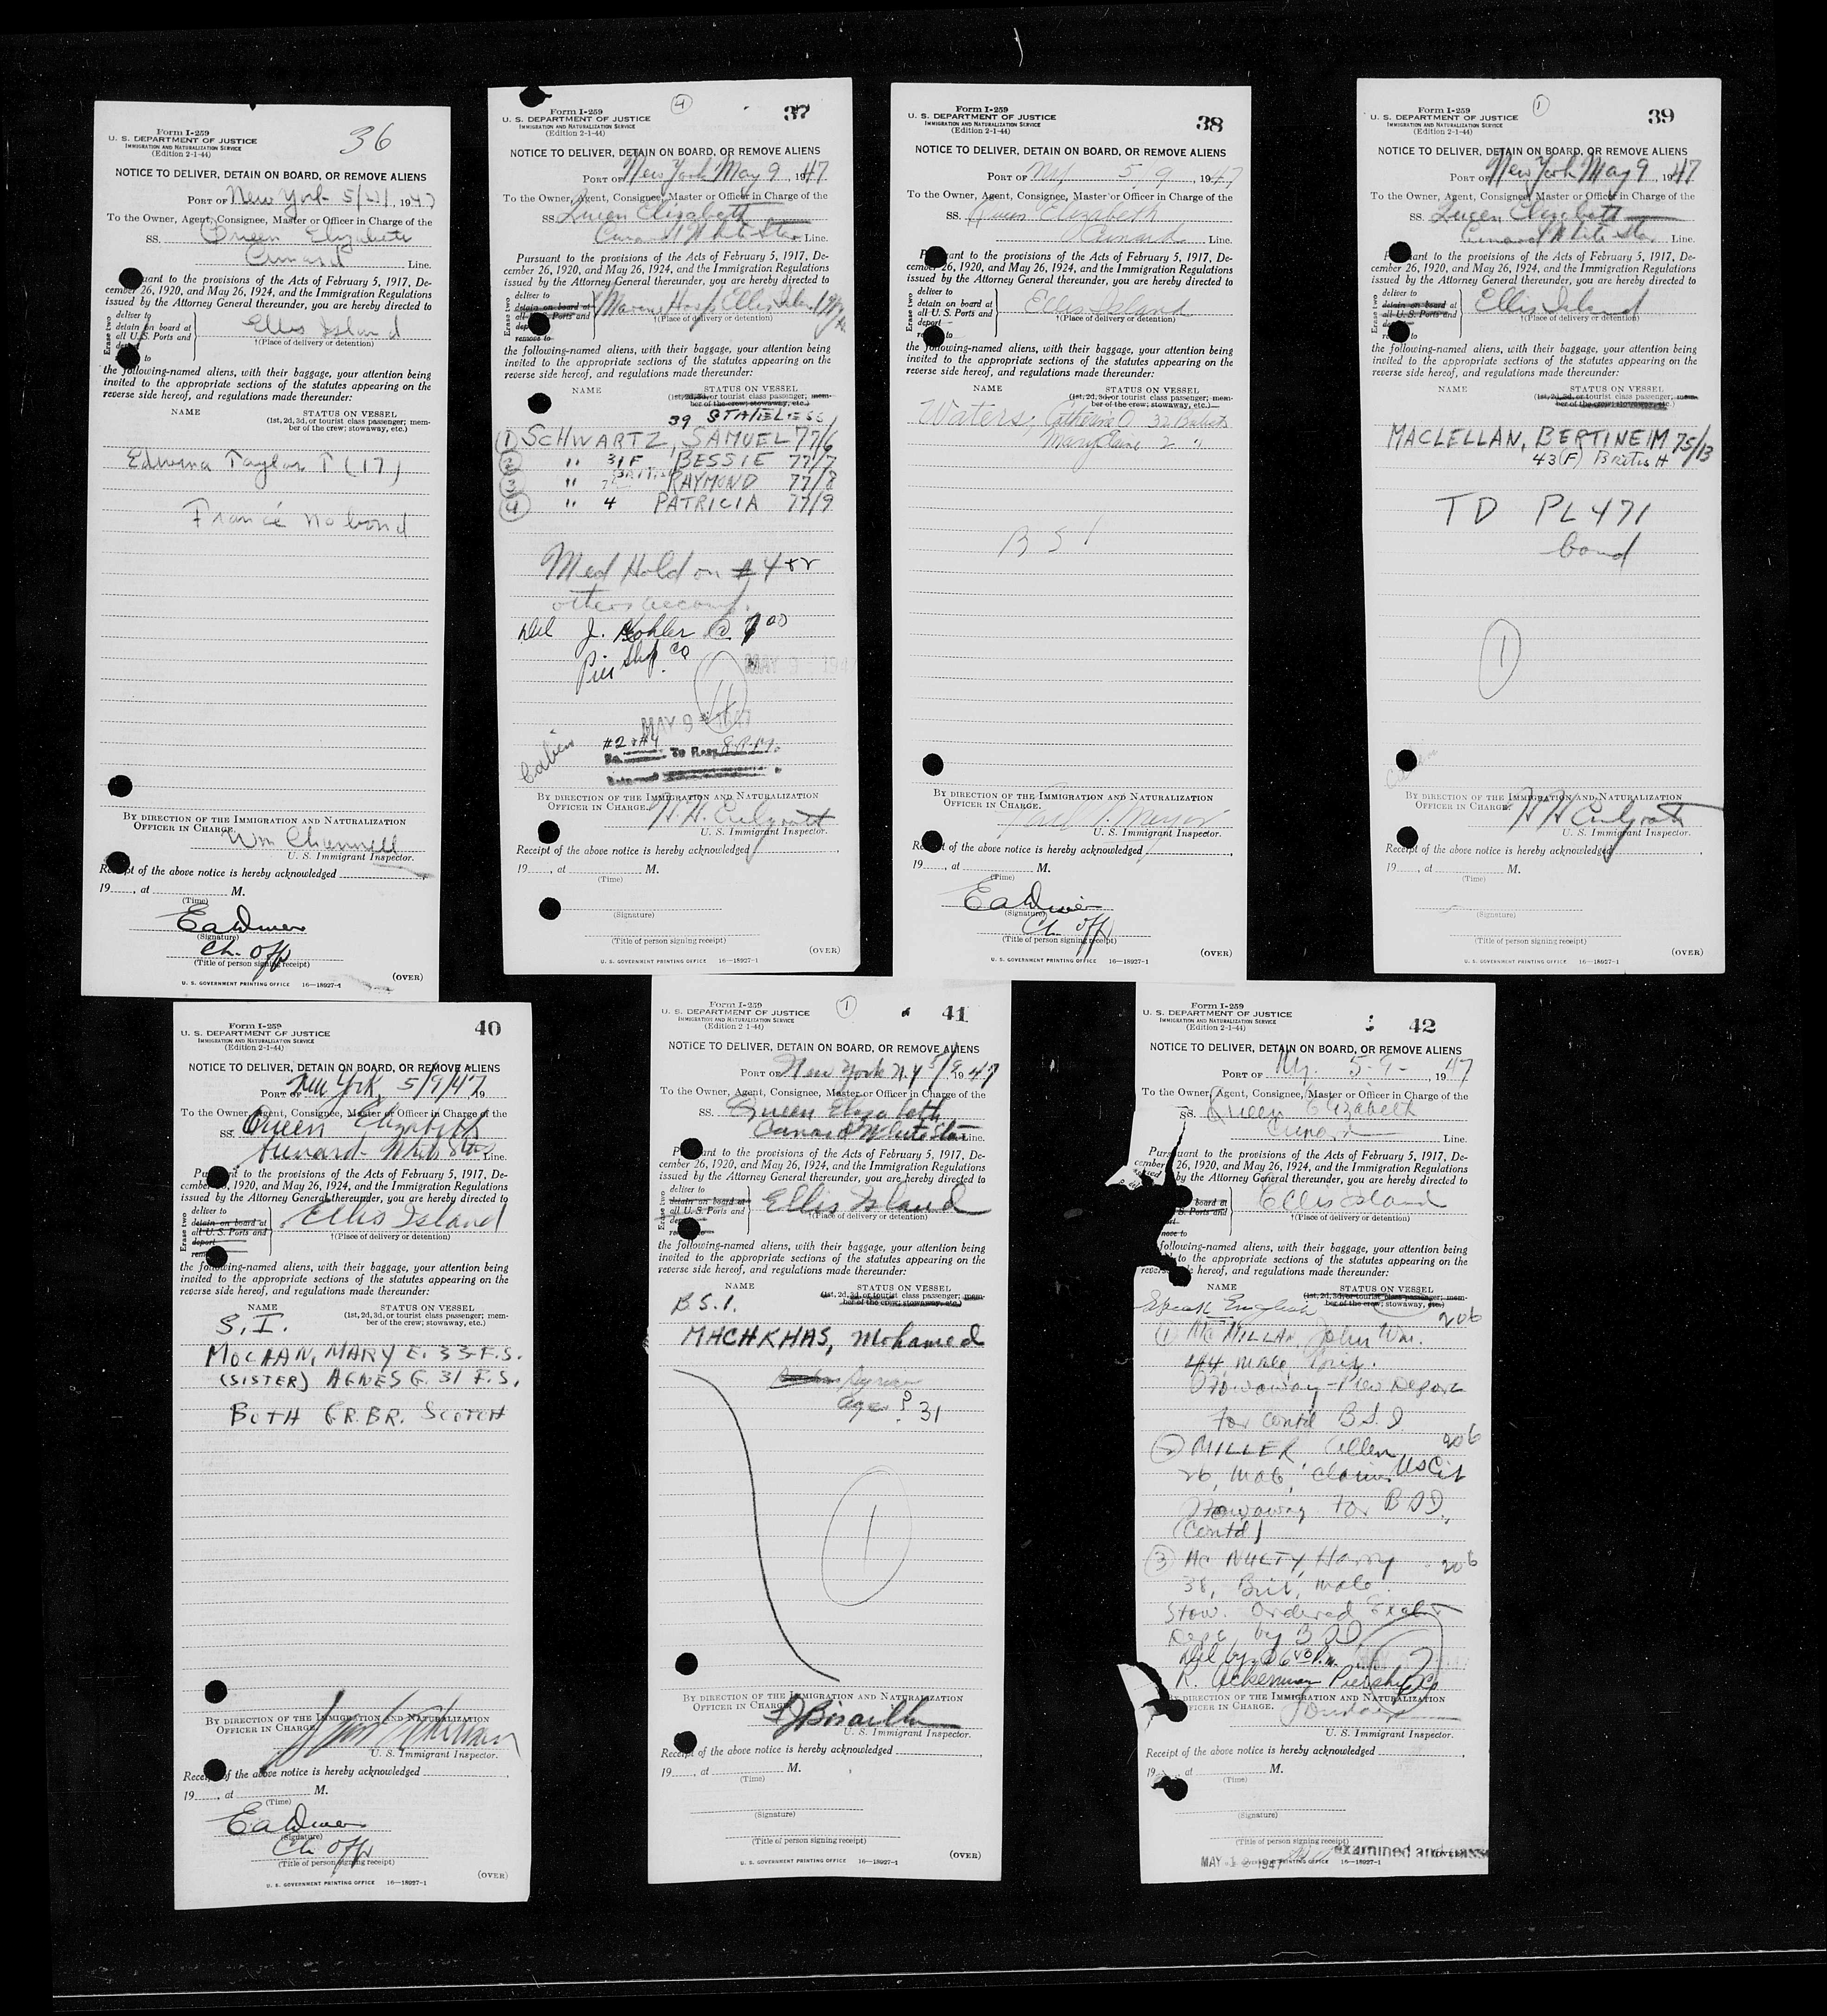 Form I-259
U. S. DEPARTMENT OF JUSTICE
IMMIGRATION AND NATURALIZATION SERVICE
(Edition 2-1-44)
36
NOTICE TO DELIVER, DETAIN ON BOARD, OR REMOVE ALIENS
PORT OF New York 5/ , 1947
To the Owner, Agent, Consignee, Master or Officer in Charge of the
SS. Queen Elizabeth
Cunard Line.
uant to the provisions of the Acts of February 5, 1917, De-
cember 26, 1920, and May 26, 1924, and the Immigration Regulations
issued by the Attorney General thereunder, you are hereby directed to
Erase two
deliver to
detain on board at
all U.S. Ports and
to
Ellis Island
†(Place of delivery or detention)
the following-named aliens, with their baggage, your attention being
invited to the appropriate sections of the statutes appearing on the
reverse side hereof, and regulations made thereunder:
NAME STATUS ON VESSEL
(1st, 2d, 3d, or tourist class passenger; mem-
ber of the crew; stowaway, etc.)
Edwina Taylor T (17)
no bond
BY DIRECTION OF THE IMMIGRATION AND NATURALIZATION
OFFICER IN CHARGE.
Wm Channell
U. S. Immigrant Inspector.
Receipt of the above notice is hereby acknowledged
19 , at M.
(Time)
(Signature)
Ch. Off
(Title of person signing receipt)
(OVER)
U. S. GOVERNMENT PRINTING OFFICE 16—18927-1
Form I-259
U. S. DEPARTMENT OF JUSTICE
IMMIGRATION AND NATURALIZATION SERVICE
(Edition 2-1-44)
4
37
NOTICE TO DELIVER, DETAIN ON BOARD, OR REMOVE ALIENS
PORT OF New York May 9, 1947
To the Owner, Agent, Consignee, Master or Officer in Charge of the
SS. Queen Elizabeth
Cunard White Star Line.
Pursuant to the provisions of the Acts of February 5, 1917, De-
cember 26, 1920, and May 26, 1924, and the Immigration Regulations
issued by the Attorney General thereunder, you are hereby directed to
Erase two
deliver to
detain on board at
all U. S. Ports and
remove to
Marine Hosp Ellis Island
†(Place of delivery or detention)
the following-named aliens, with their baggage, your attention being
invited to the appropriate sections of the statutes appearing on the
reverse side hereof, and regulations made thereunder:
NAME STATUS ON VESSEL
(1st, 2d, 3d, or tourist class passenger; mem-
ber of the crew; stowaway, etc.)
39 STATELESS
1 SCHWARTZ, SAMUEL 77/6
2 " 31F BESSIE 77/7
3 " RAYMOND 77/8
4 " 4 PATRICIA 77/9
Med Hold on #4
others accomp.
Del J. Kohler @ 7 00
Pier Shop Co
MAY 9 1947
4
MAY 9 1947
#2 + #4
Cabin
BY DIRECTION OF THE IMMIGRATION AND NATURALIZATION
OFFICER IN CHARGE.
U. S. Immigrant Inspector.
Receipt of the above notice is hereby acknowledged
19 , at M.
(Time)
(Signature)
(Title of person signing receipt)
(OVER)
U. S. GOVERNMENT PRINTING OFFICE 16—18927-1
Form I-259
U. S. DEPARTMENT OF JUSTICE
IMMIGRATION AND NATURALIZATION SERVICE
(Edition 2-1-44)
38
NOTICE TO DELIVER, DETAIN ON BOARD, OR REMOVE ALIENS
PORT OF NY 5 9, 1947
To the Owner, Agent, Consignee, Master or Officer in Charge of the
SS. Queen Elizabeth
Cunard Line.
ant to the provisions of the Acts of February 5, 1917, De-
cember 26, 1920, and May 26, 1924, and the Immigration Regulations
issued by the Attorney General thereunder, you are hereby directed to
Erase two
deliver to
detain on board at
all U. S. Ports and
deport
to
Ellis Island
†(Place of delivery or detention)
the following-named aliens, with their baggage, your attention being
invited to the appropriate sections of the statutes appearing on the
reverse side hereof, and regulations made thereunder:
NAME STATUS ON VESSEL
(1st, 2d, 3d, or tourist class passenger; mem-
ber of the crew; stowaway, etc.)
Waters, Catherine O 32 British
Mary Elaine 2 "
B S I
BY DIRECTION OF THE IMMIGRATION AND NATURALIZATION
OFFICER IN CHARGE.
U. S. Immigrant Inspector.
of the above notice is hereby acknowledged
19 , at M.
(Time)
(Signature)
Ch. Off
(Title of person signing receipt)
(OVER)
U. S. GOVERNMENT PRINTING OFFICE 16—18927-1
Form I-259
U. S. DEPARTMENT OF JUSTICE
IMMIGRATION AND NATURALIZATION SERVICE
(Edition 2-1-44)
1
39
NOTICE TO DELIVER, DETAIN ON BOARD, OR REMOVE ALIENS
PORT OF New York May 9, 1947
To the Owner, Agent, Consignee, Master or Officer in Charge of the
SS. Queen Elizabeth
Cunard White Star Line.
ant to the provisions of the Acts of February 5, 1917, De-
cember 26, 1920, and May 26, 1924, and the Immigration Regulations
issued by the Attorney General thereunder, you are hereby directed to
Erase two
deliver to
detain on board at
all U. S. Ports and
to
Ellis Island
†(Place of delivery or detention)
the following-named aliens, with their baggage, your attention being
invited to the appropriate sections of the statutes appearing on the
reverse side hereof, and regulations made thereunder:
NAME STATUS ON VESSEL
(1st, 2d, 3d, or tourist class passenger; mem-
ber of the crew; stowaway, etc.)
MACLELLAN, BERTINEIM 75/13
43 (F) British
TD PL 471
bond
1
BY DIRECTION OF THE IMMIGRATION AND NATURALIZATION
OFFICER IN CHARGE.
U. S. Immigrant Inspector.
Receipt of the above notice is hereby acknowledged
19 , at M.
(Time)
(Signature)
(Title of person signing receipt)
(OVER)
U. S. GOVERNMENT PRINTING OFFICE 16—18927-1
Form I-259
U. S. DEPARTMENT OF JUSTICE
IMMIGRATION AND NATURALIZATION SERVICE
(Edition 2-1-44)
40
NOTICE TO DELIVER, DETAIN ON BOARD, OR REMOVE ALIENS
PORT OF New York, 5/9/47 19
To the Owner, Agent, Consignee, Master or Officer in Charge of the
SS. Queen Elizabeth
Cunard White Star Line.
to the provisions of the Acts of February 5, 1917, De-
cember 26, 1920, and May 26, 1924, and the Immigration Regulations
issued by the Attorney General thereunder, you are hereby directed to
Erase two
deliver to
detain on board at
all U. S. Ports and
deport
Ellis Island
†(Place of delivery or detention)
the following-named aliens, with their baggage, your attention being
invited to the appropriate sections of the statutes appearing on the
reverse side hereof, and regulations made thereunder:
NAME STATUS ON VESSEL
(1st, 2d, 3d, or tourist class passenger; mem-
ber of the crew; stowaway, etc.)
S. I.
MOCHAN, MARY E. 33-F.S.
(SISTER) AGNES G. 31 F.S.
BOTH GR. BR. SCOTCH
BY DIRECTION OF THE IMMIGRATION AND NATURALIZATION
OFFICER IN CHARGE.
U. S. Immigrant Inspector.
Receipt of the above notice is hereby acknowledged
19 , at M.
(Time)
(Signature)
Ch Off
(Title of person signing receipt)
(OVER)
U. S. GOVERNMENT PRINTING OFFICE 16—18927-1
Form I-259
U. S. DEPARTMENT OF JUSTICE
IMMIGRATION AND NATURALIZATION SERVICE
(Edition 2 1-44)
1
41
NOTICE TO DELIVER, DETAIN ON BOARD, OR REMOVE ALIENS
PORT OF New York N.Y 5/9 1947
To the Owner, Agent, Consignee, Master or Officer in Charge of the
SS. Queen Elizabeth
Cunard White Star Line.
ant to the provisions of the Acts of February 5, 1917, De-
cember 26, 1920, and May 26, 1924, and the Immigration Regulations
issued by the Attorney General thereunder, you are hereby directed to
Erase two
deliver to
detain on board at
all U. S. Ports and
Ellis Island
†(Place of delivery or detention)
the following-named aliens, with their baggage, your attention being
invited to the appropriate sections of the statutes appearing on the
reverse side hereof, and regulations made thereunder:
NAME STATUS ON VESSEL
(1st, 2d, 3d, or tourist class passenger; mem-
ber of the crew; stowaway, etc.)
B.S.I.
MACHKHAS, Mohamed
Syrian
age ? 31
1
BY DIRECTION OF THE IMMIGRATION AND NATURALIZATION
OFFICER IN CHARGE.
U. S. Immigrant Inspector.
Receipt of the above notice is hereby acknowledged
19 , at M.
(Time)
(Signature)
(Title of person signing receipt)
(OVER)
U. S. GOVERNMENT PRINTING OFFICE 16—18927-1
Form I-259
U. S. DEPARTMENT OF JUSTICE
IMMIGRATION AND NATURALIZATION SERVICE
(Edition 2-1-44)
42
NOTICE TO DELIVER, DETAIN ON BOARD, OR REMOVE ALIENS
PORT OF Ny. 5-9- , 1947
To the Owner, Agent, Consignee, Master or Officer in Charge of the
SS. Queen Elizabeth
Cunard Line.
Pursuant to the provisions of the Acts of February 5, 1917, De-
cember 26, 1920, and May 26, 1924, and the Immigration Regulations
by the Attorney General thereunder, you are hereby directed to
board at
S. Ports and
Ellis Island
†(Place of delivery or detention)
following-named aliens, with their baggage, your attention being
to the appropriate sections of the statutes appearing on the
hereof, and regulations made thereunder:
NAME STATUS ON VESSEL
(1st, 2d, 3d, or tourist class passenger; mem-
ber of the crew; stowaway, etc.)
Speak English
206
1 McMILLAN, John Wm.
44 male Brit.
Stowaway -
for contd B.S.I.
2 MILLER, Allen, 206
26, male, claims US Cit
Stowaway for BSI
(Contd)
3 Mc NULTY, Harry 206
38, Brit, male.
Stow. Ordered Excl +
Depo by BSI
Del by @ 6 40 P.m.
R. Ackerman Pier
BY DIRECTION OF THE IMMIGRATION AND NATURALIZATION
OFFICER IN CHARGE.
U. S. Immigrant Inspector.
Receipt of the above notice is hereby acknowledged
19 , at M.
(Time)
(Signature)
(Title of person signing receipt)
examined and passed
MAY 12 1947 PRINTING OFFICE 16—18927-1